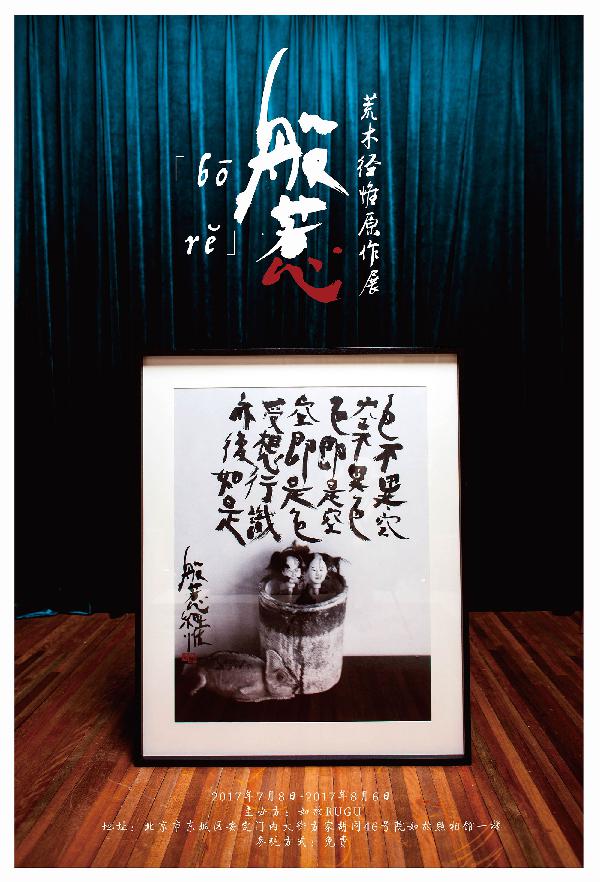 荒木径惟原作展
般惹
「bō
rě」
色不異空
空不異色
色即是空
空即是色
受想行識
亦復如是
般惹経惟
2017年7月8日-2017年8月6日
主办方：如故RUGU
地址：北京市东城区安定门内大街方家胡同46号院如故照相馆一楼
参观方式：免费